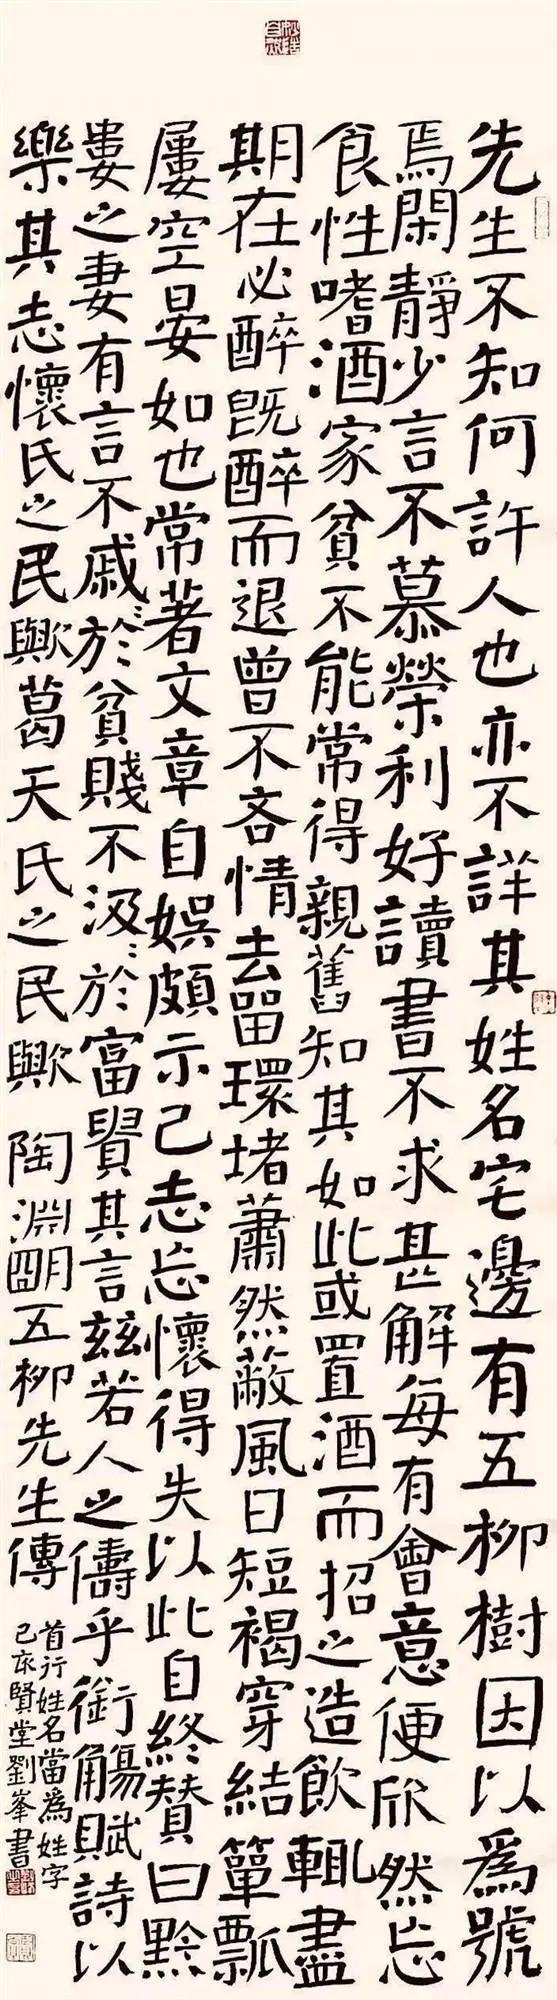 先生不知何許人也亦不詳其姓名宅邊有五柳樹因以爲號
焉閑靜少言不慕榮利好讀書不求甚解每有會意便欣然忘
食性嗜酒家貧不能常得親舊知其如此或置酒而招之造飲輒盡
期在必醉既醉而退曾不吝情去留環堵蕭然蔽風日短褐穿結簞瓢
屢空晏如也常著文章自娛頗示己志忘懷得失以此自終贊曰黔
婁之妻有言不戚〻於貧賤不汲〻於富貴其言茲若人之儔乎銜觴賦詩以
樂其志懷氏之民歟葛天氏之民歟 陶淵明五柳先生傳
首行姓名當為姓字
己亥賢堂劉峯書